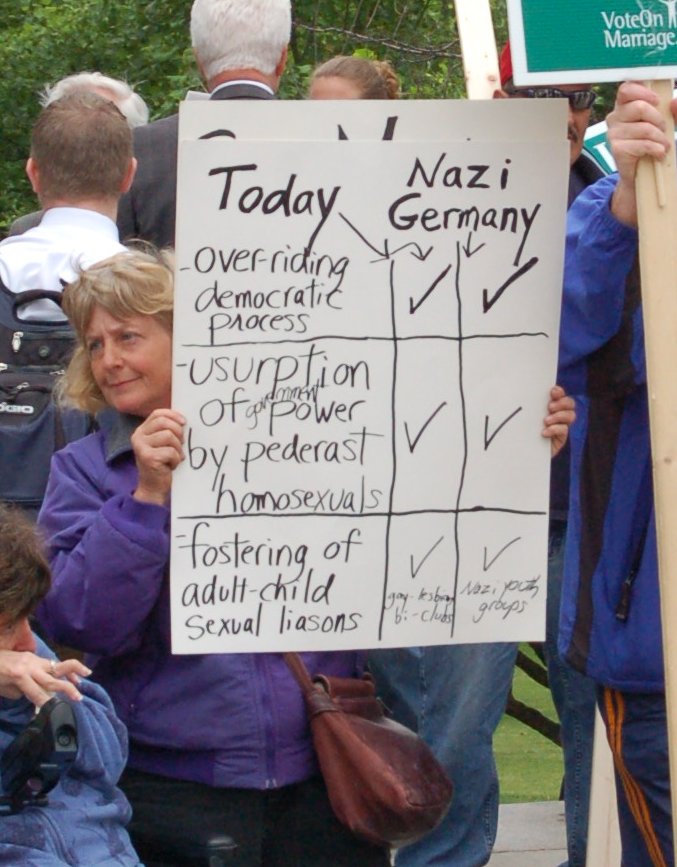 VoteOn
Marriage.
Today
Nazi
Germany
-over-riding
democratic
process
-usurption
of government power
by pederast
homosexuals
-fostering of
adult-child
sexual liasons
gay-lesbian
bi-clubs
Nazi youth
groups
OGIO